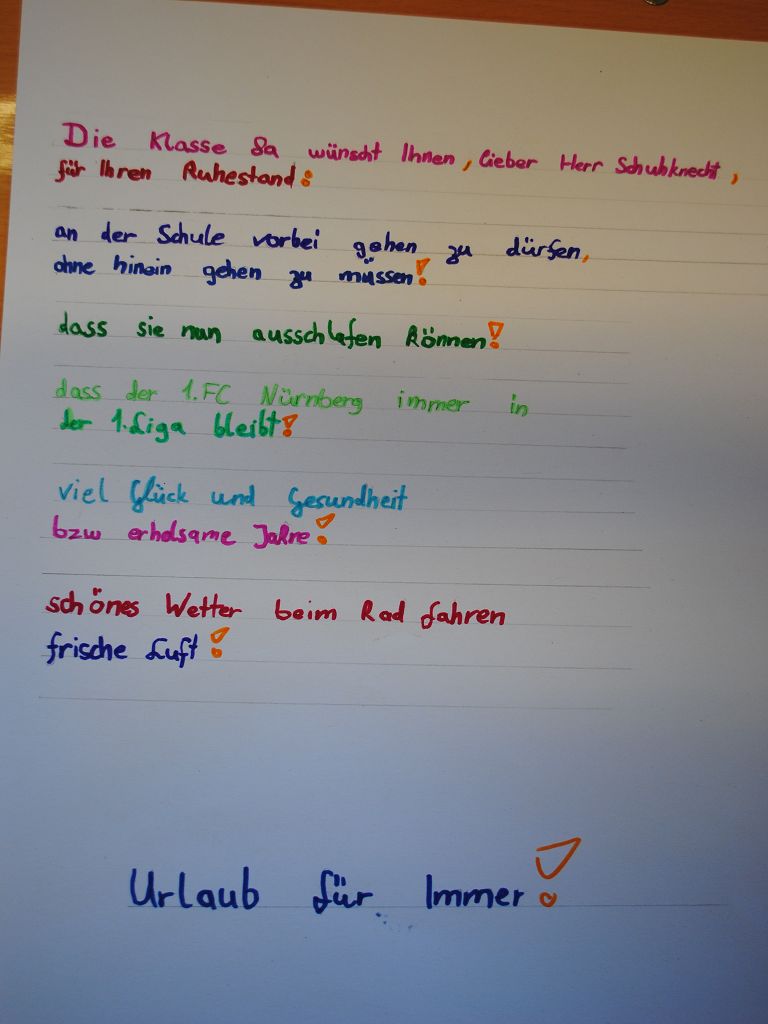 Die Klasse 8a wünscht Ihnen, lieber Herr Schuhknecht,
für Ihren Ruhestand:
an der Schule vorbei gehen zu dürfen,
ohne hinein gehen zu müssen!
dass sie nun ausschlafen können!
dass der 1.FC Nürnberg immer in
der 1.Liga bleibt!
viel Glück und Gesundheit
bzw erholsame Jahre!
schönes Wetter beim Rad fahren
frische Luft!
Urlaub für Immer!